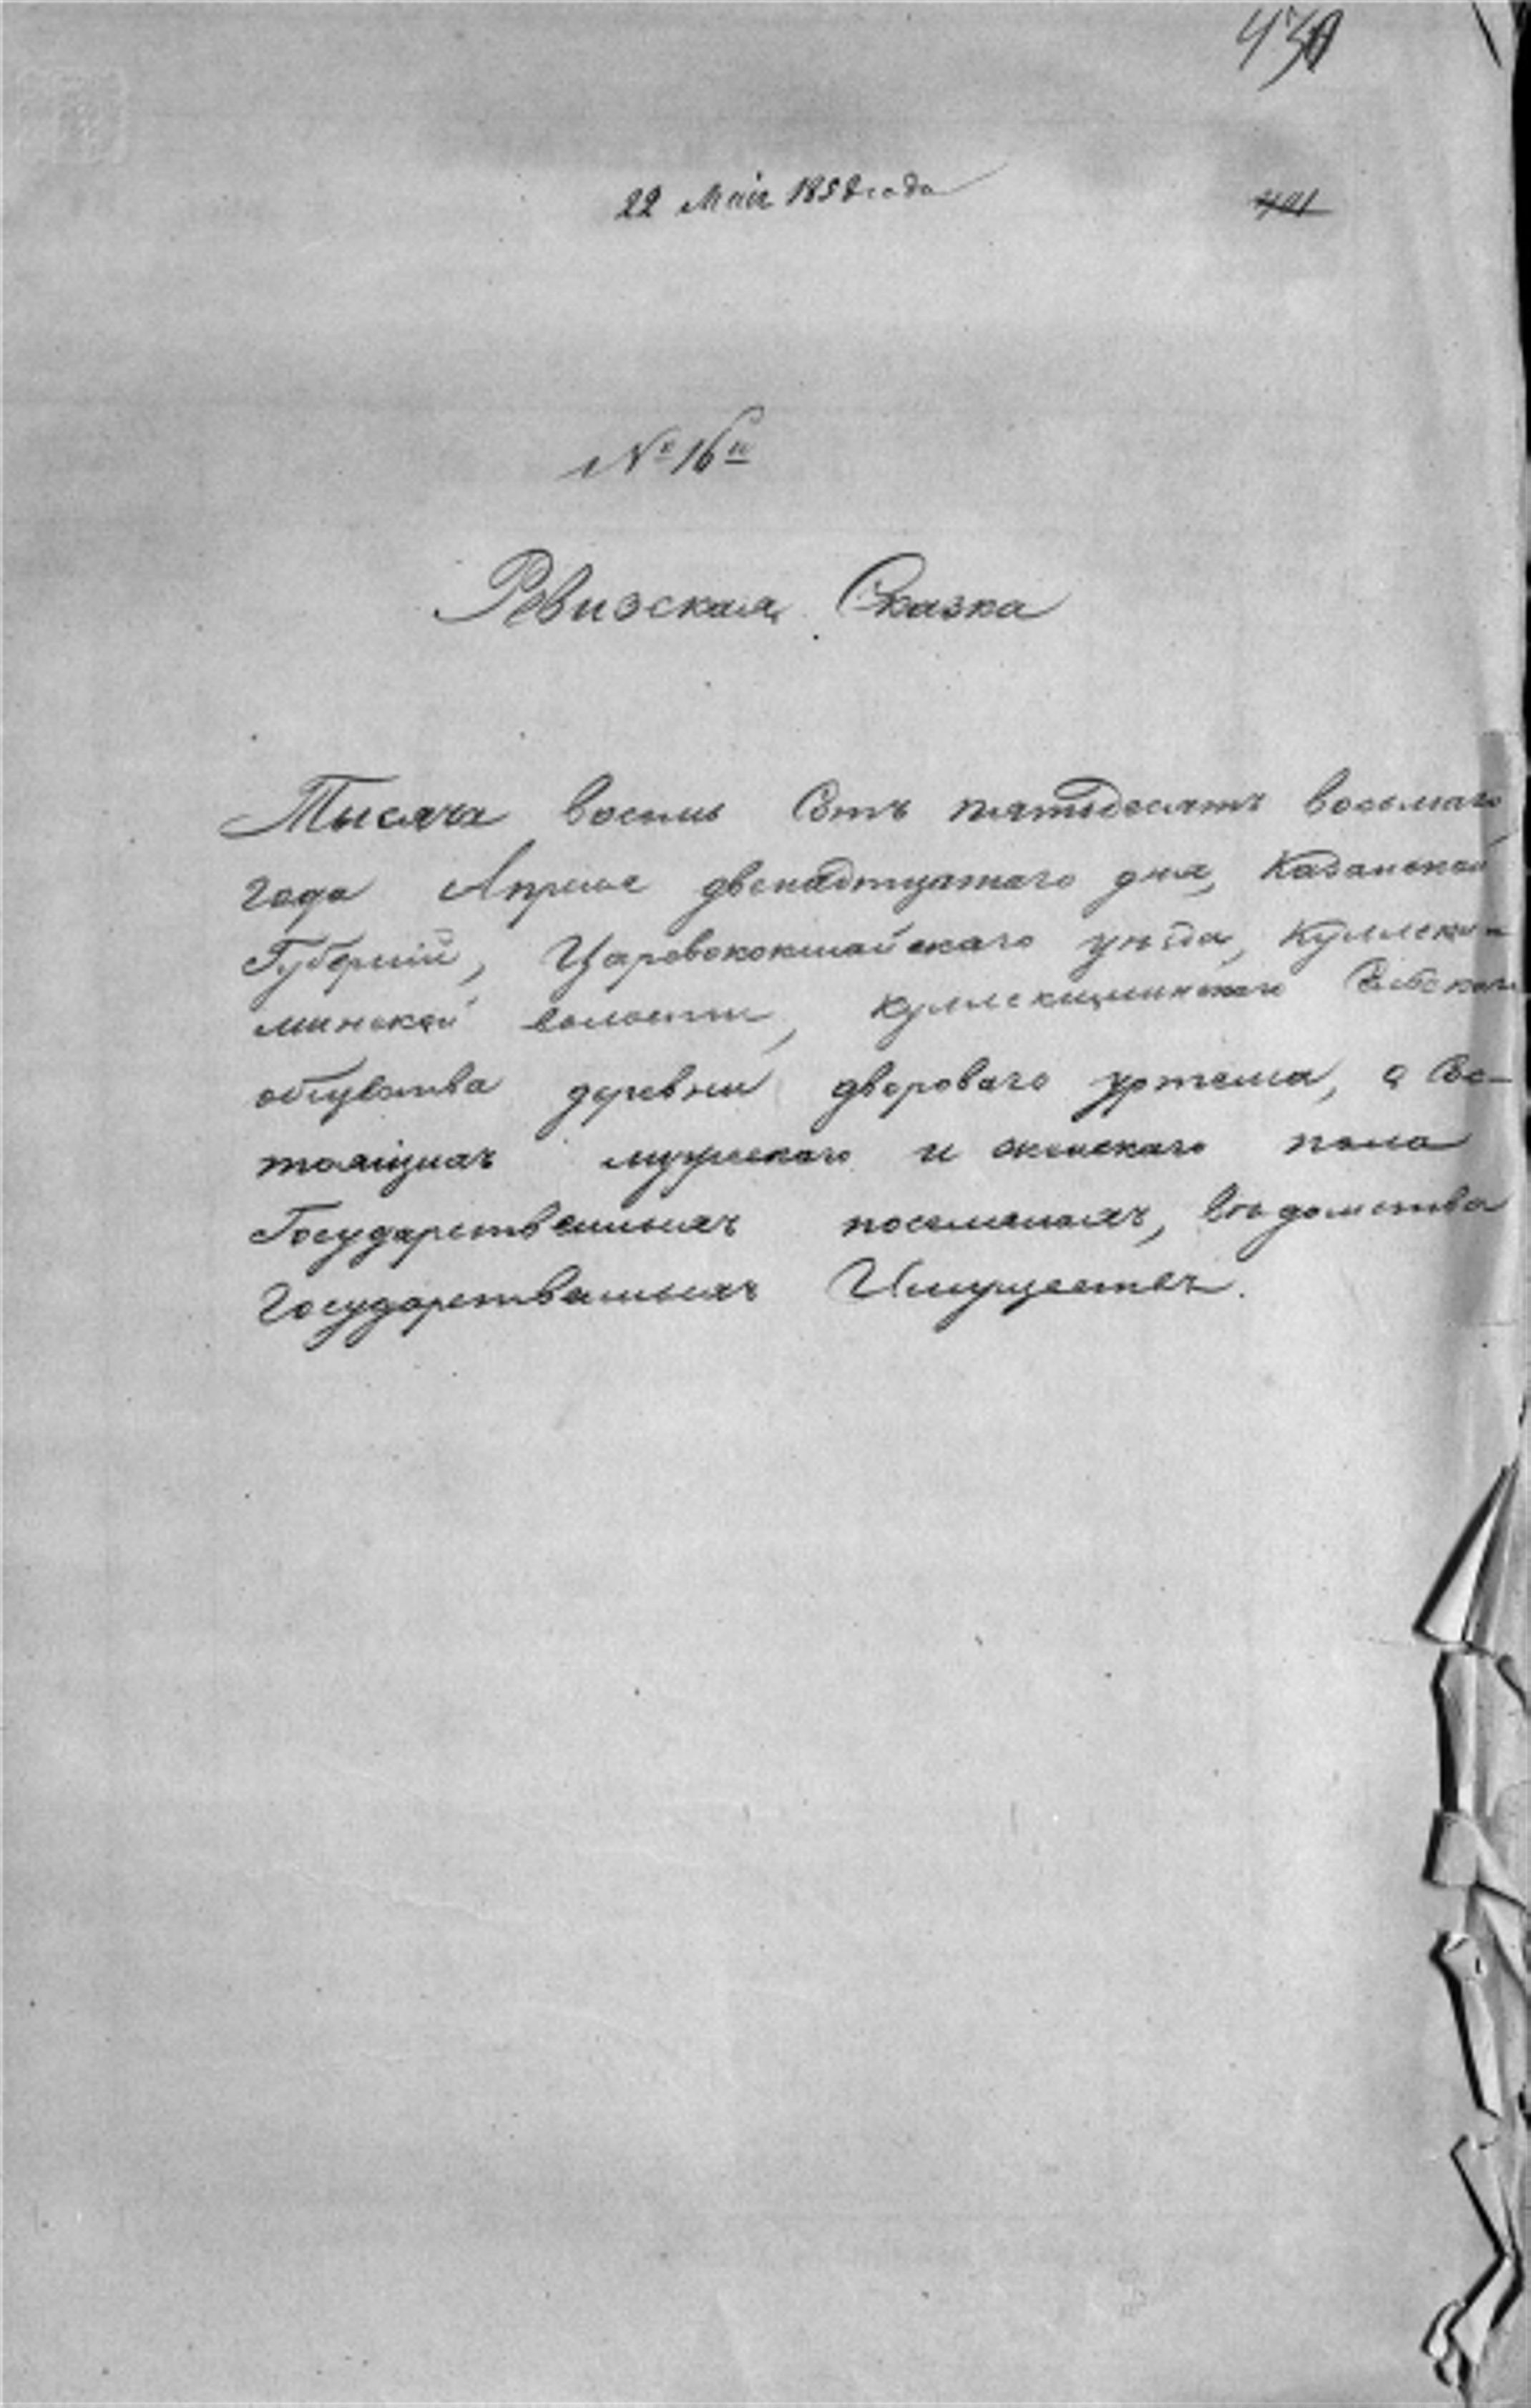 430
22 Мая 1858 года
491
№ 16й
Ревизская Сказка
Тысяча восемь Сотъ пятьдесятъ восьмаго
года Апреля двенадтцатаго дня, Казанской
Губерніи, Царевококшайскаго уѣзда, Кулле-Ки-
минской волости, Куллекиминскаго Сельскаго
общества деревни дворового уртема, о Со-
тоящихъ мужескаго и женскаго пола
Государственныхъ поселянахъ, вѣдомства
Государственныхъ Имуществъ.